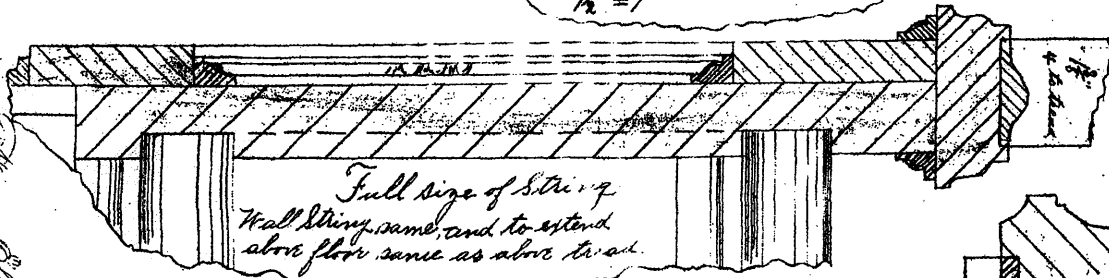 Full size of String
Wall String same, and to extend
above floor same as above tread.
4 to tread